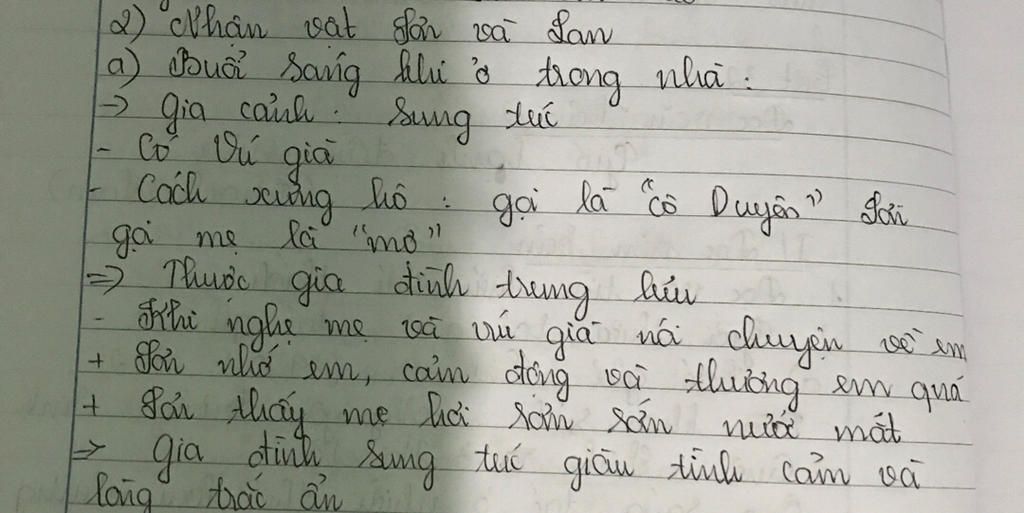 2) Nhân vật Sơn và Lan
a) Buổi sáng khi ở trong nhà:
→ gia cảnh: Sung túc
- Có Vú già
- Cách xưng hô: gọi là "cô Duyên" Sơn
gọi mẹ là "mợ"
=> Thuộc gia đình trung lưu
- Khi nghe mẹ và vú già nói chuyện về em
+ Sơn nhớ em, cảm động và thương em quá
+ Sơn thấy mẹ hơi rơm rớm nước mắt
=> gia đình sung túc giàu tình cảm và
lòng trắc ẩn